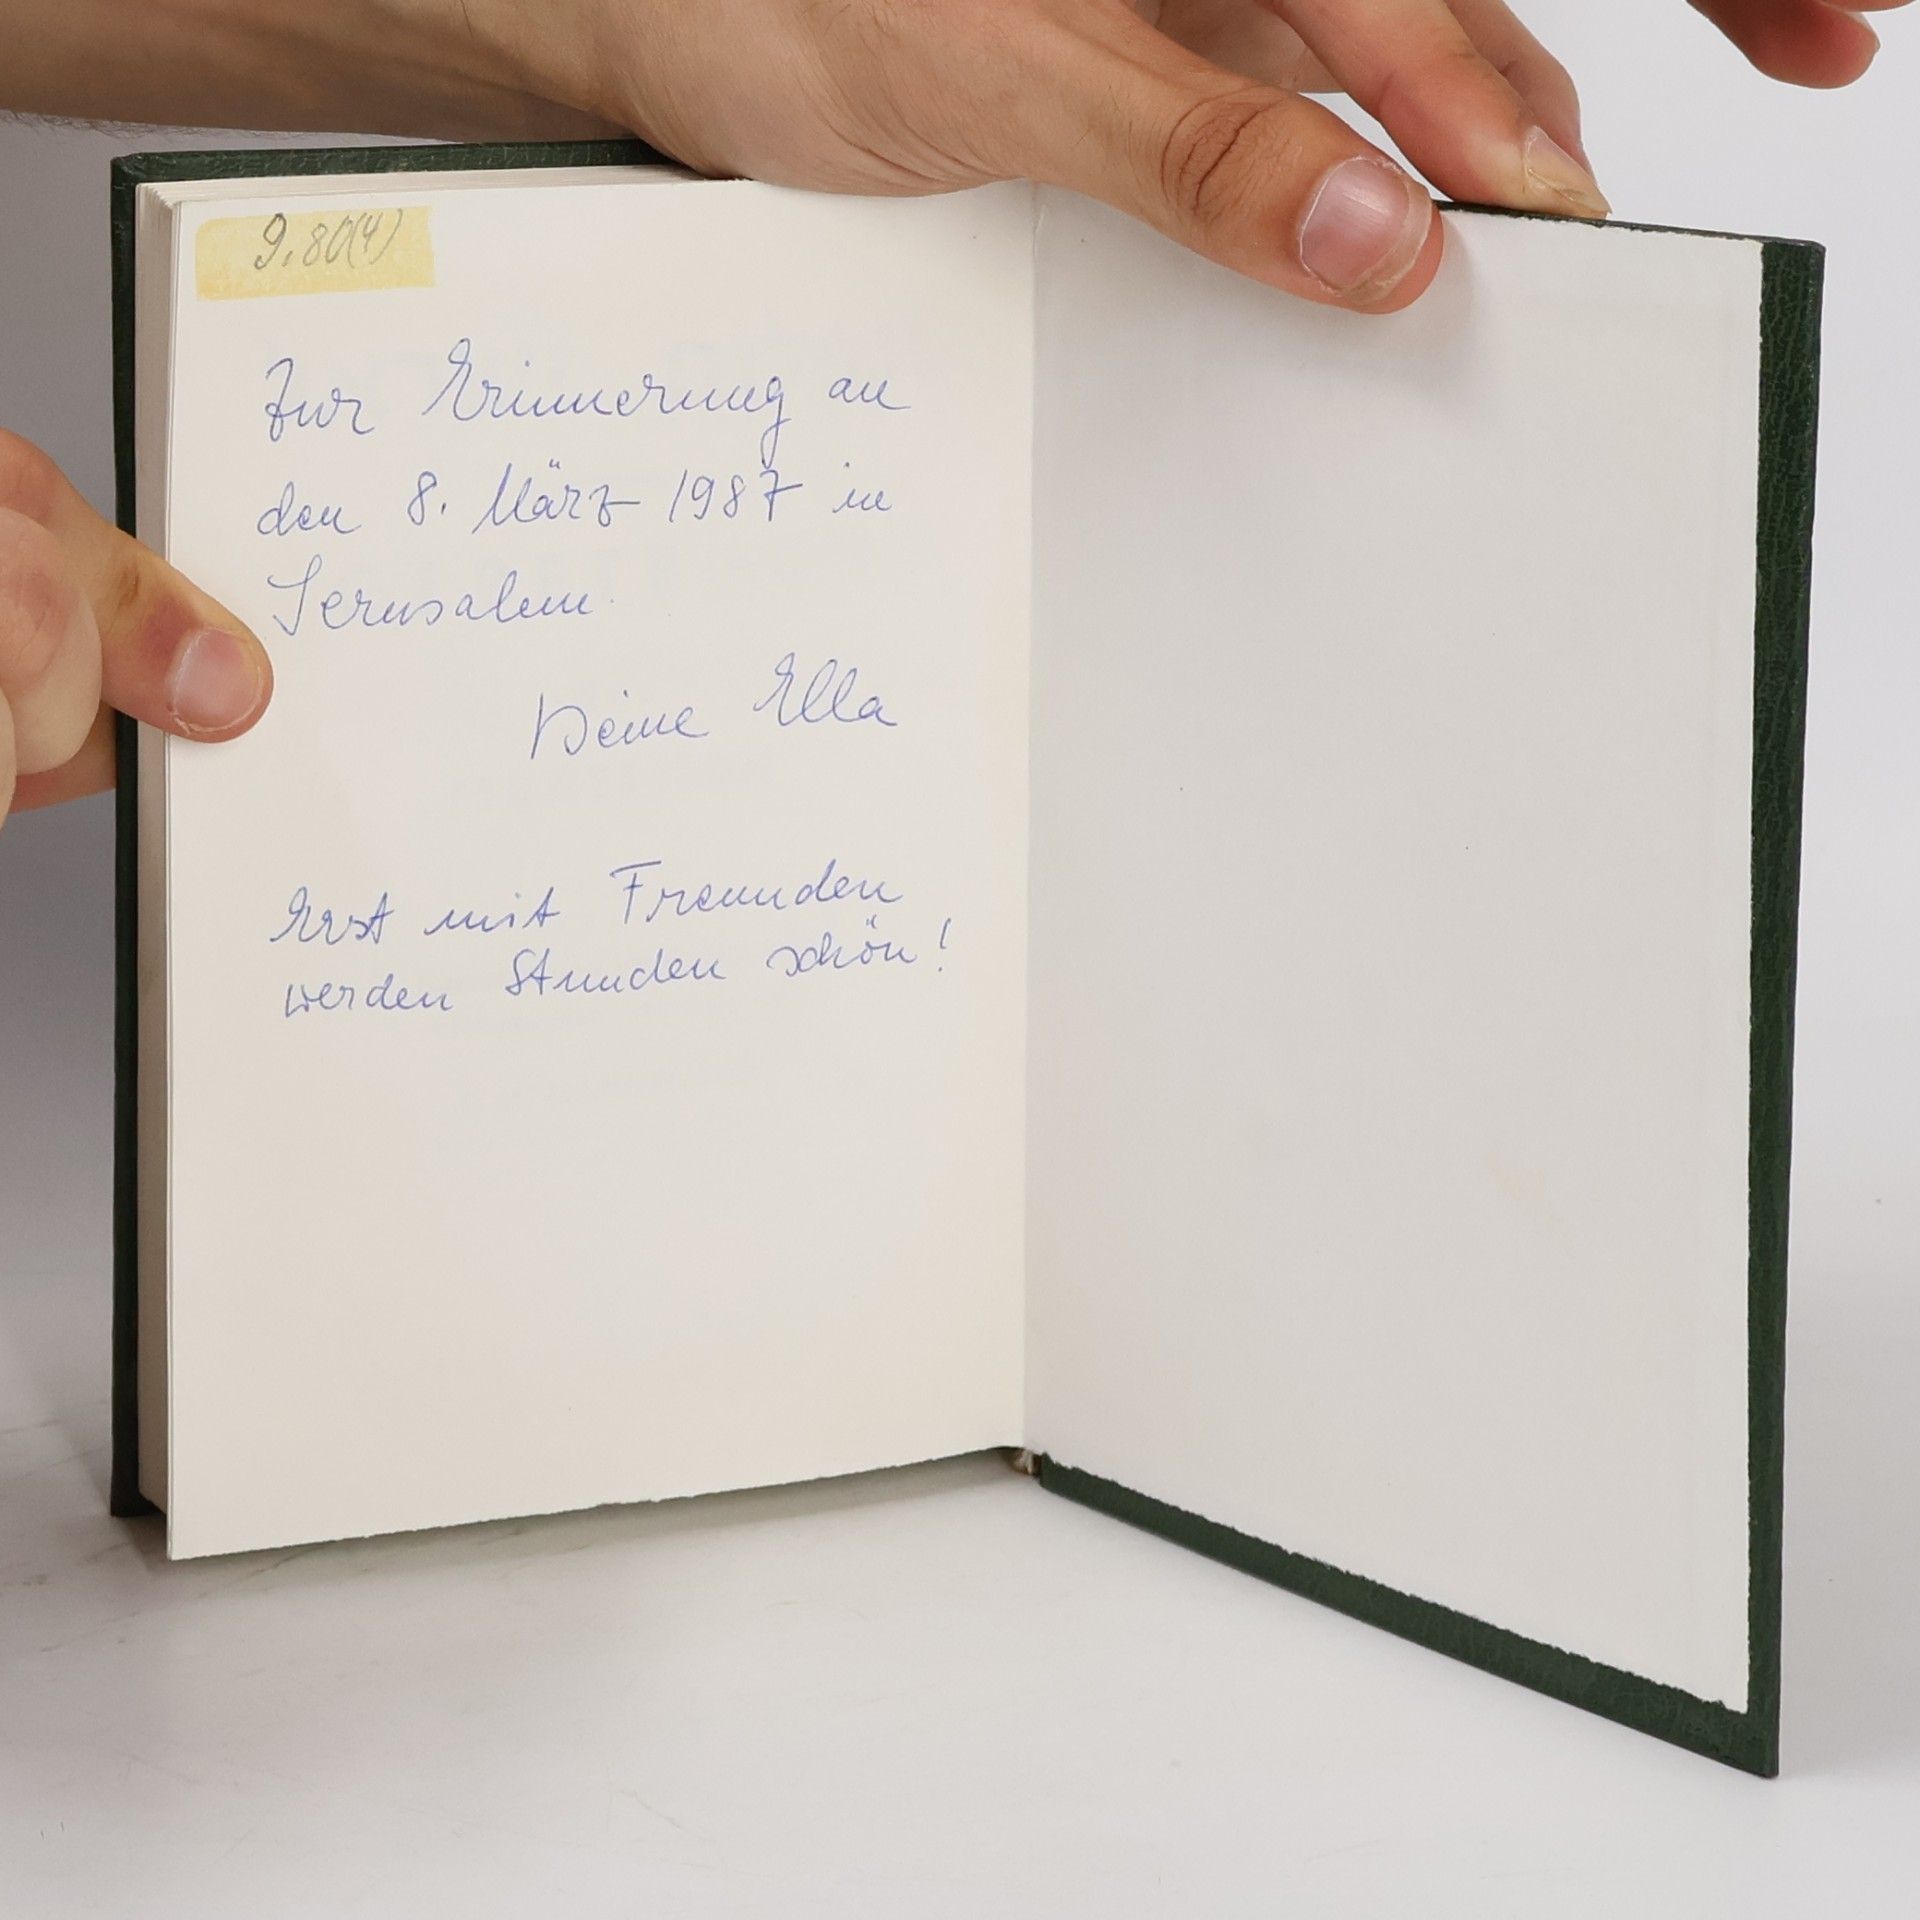 9.80(4)
Zur Erinnerung an
den 8. März 1987 in
Jerusalem.
Deine Ella
Erst mit Freunden
werden Stunden schön!